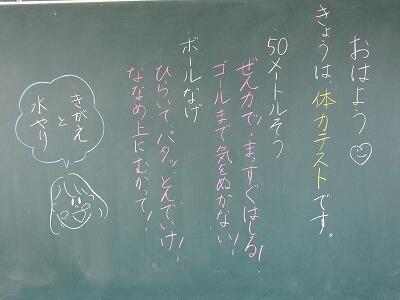 おはよう
きょうは、体力テストです。
50メートルそう
ぜん力で、まっすぐはしる!
ゴールまで気をぬかない!
ボールなげ
ひらいて、パタッ、とんでいけ!
ななめ上にむかって!
きがえ
と
水やり